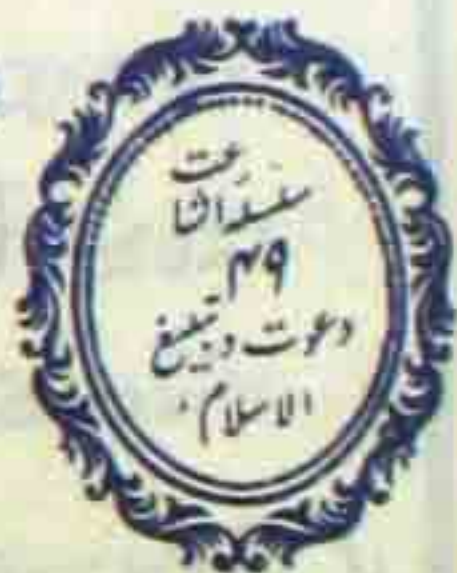 سلسلہ اشاعت
۴۹
دعوت و تبلیغ
الاسلام